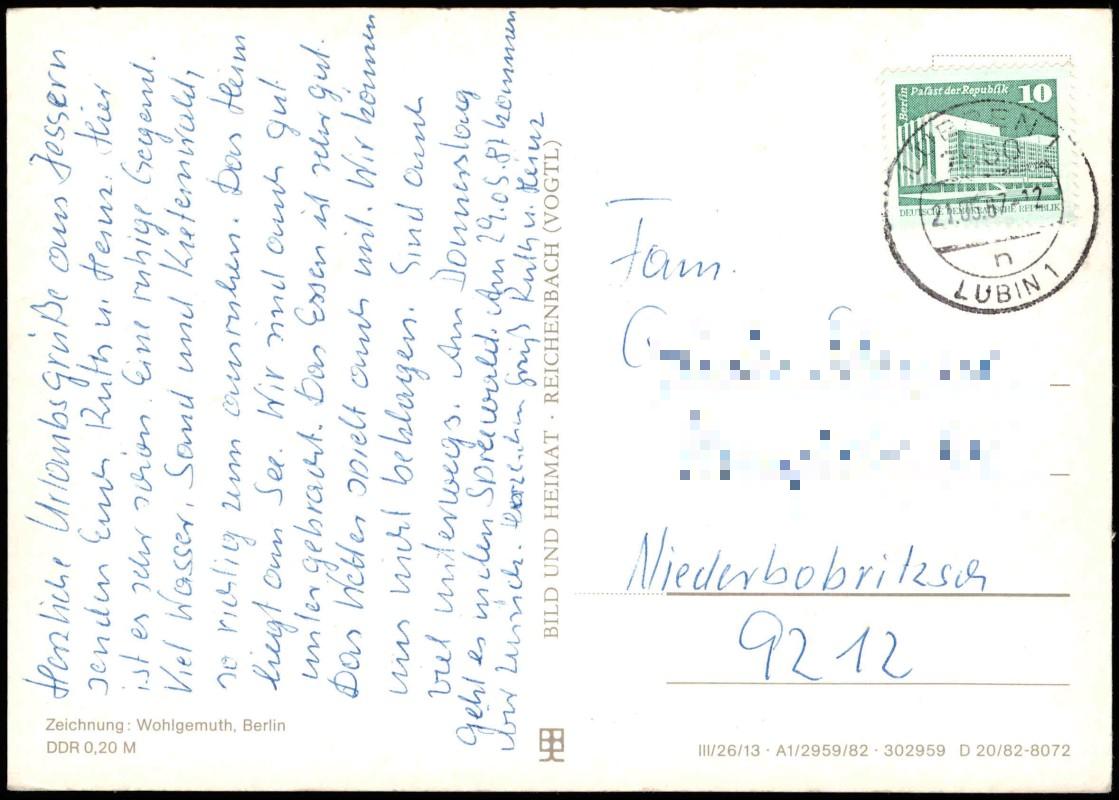 Herzliche Urlaubsgrüße aus Jessern
senden Euch Ruth u. Heinz. Hier
ist es sehr schön. Eine ruhige Gegend.
Viel Wasser, Sand und Kiefernwald,
so richtig zum ausruhen. Das Heim
liegt am See. Wir sind auch gut
untergebracht. Das Essen ist sehr gut.
Das Wetter spielt auch mit. Wir können
uns nicht beklagen. Sind auch
viel unterwegs. Am Donnerstag
geht es in den Spreewald. Am 29.05.87 kommen
wir zurück. Gruß Ruth u. Heinz
BILD UND HEIMAT · REICHENBACH (VOGTL)
Zeichnung: Wohlgemuth, Berlin
DDR 0,20 M
Berlin Palast der Republik 10
DEUTSCHE DEMOKRATISCHE REPUBLIK
21.05.87-12
n
LUBIN 1
Fam.
Niederbobritzsch
9212
III/26/13 · A1/2959/82 · 302959 D 20/82-8072